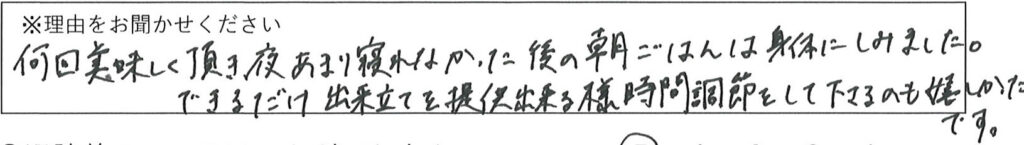 ※理由をお聞かせください
何回美味しく頂き夜あまり寝れなかった後の朝ごはんは身体にしみました。
できるだけ出来立てを提供出来る様時間調節をして下さるのも嬉しかた
です。